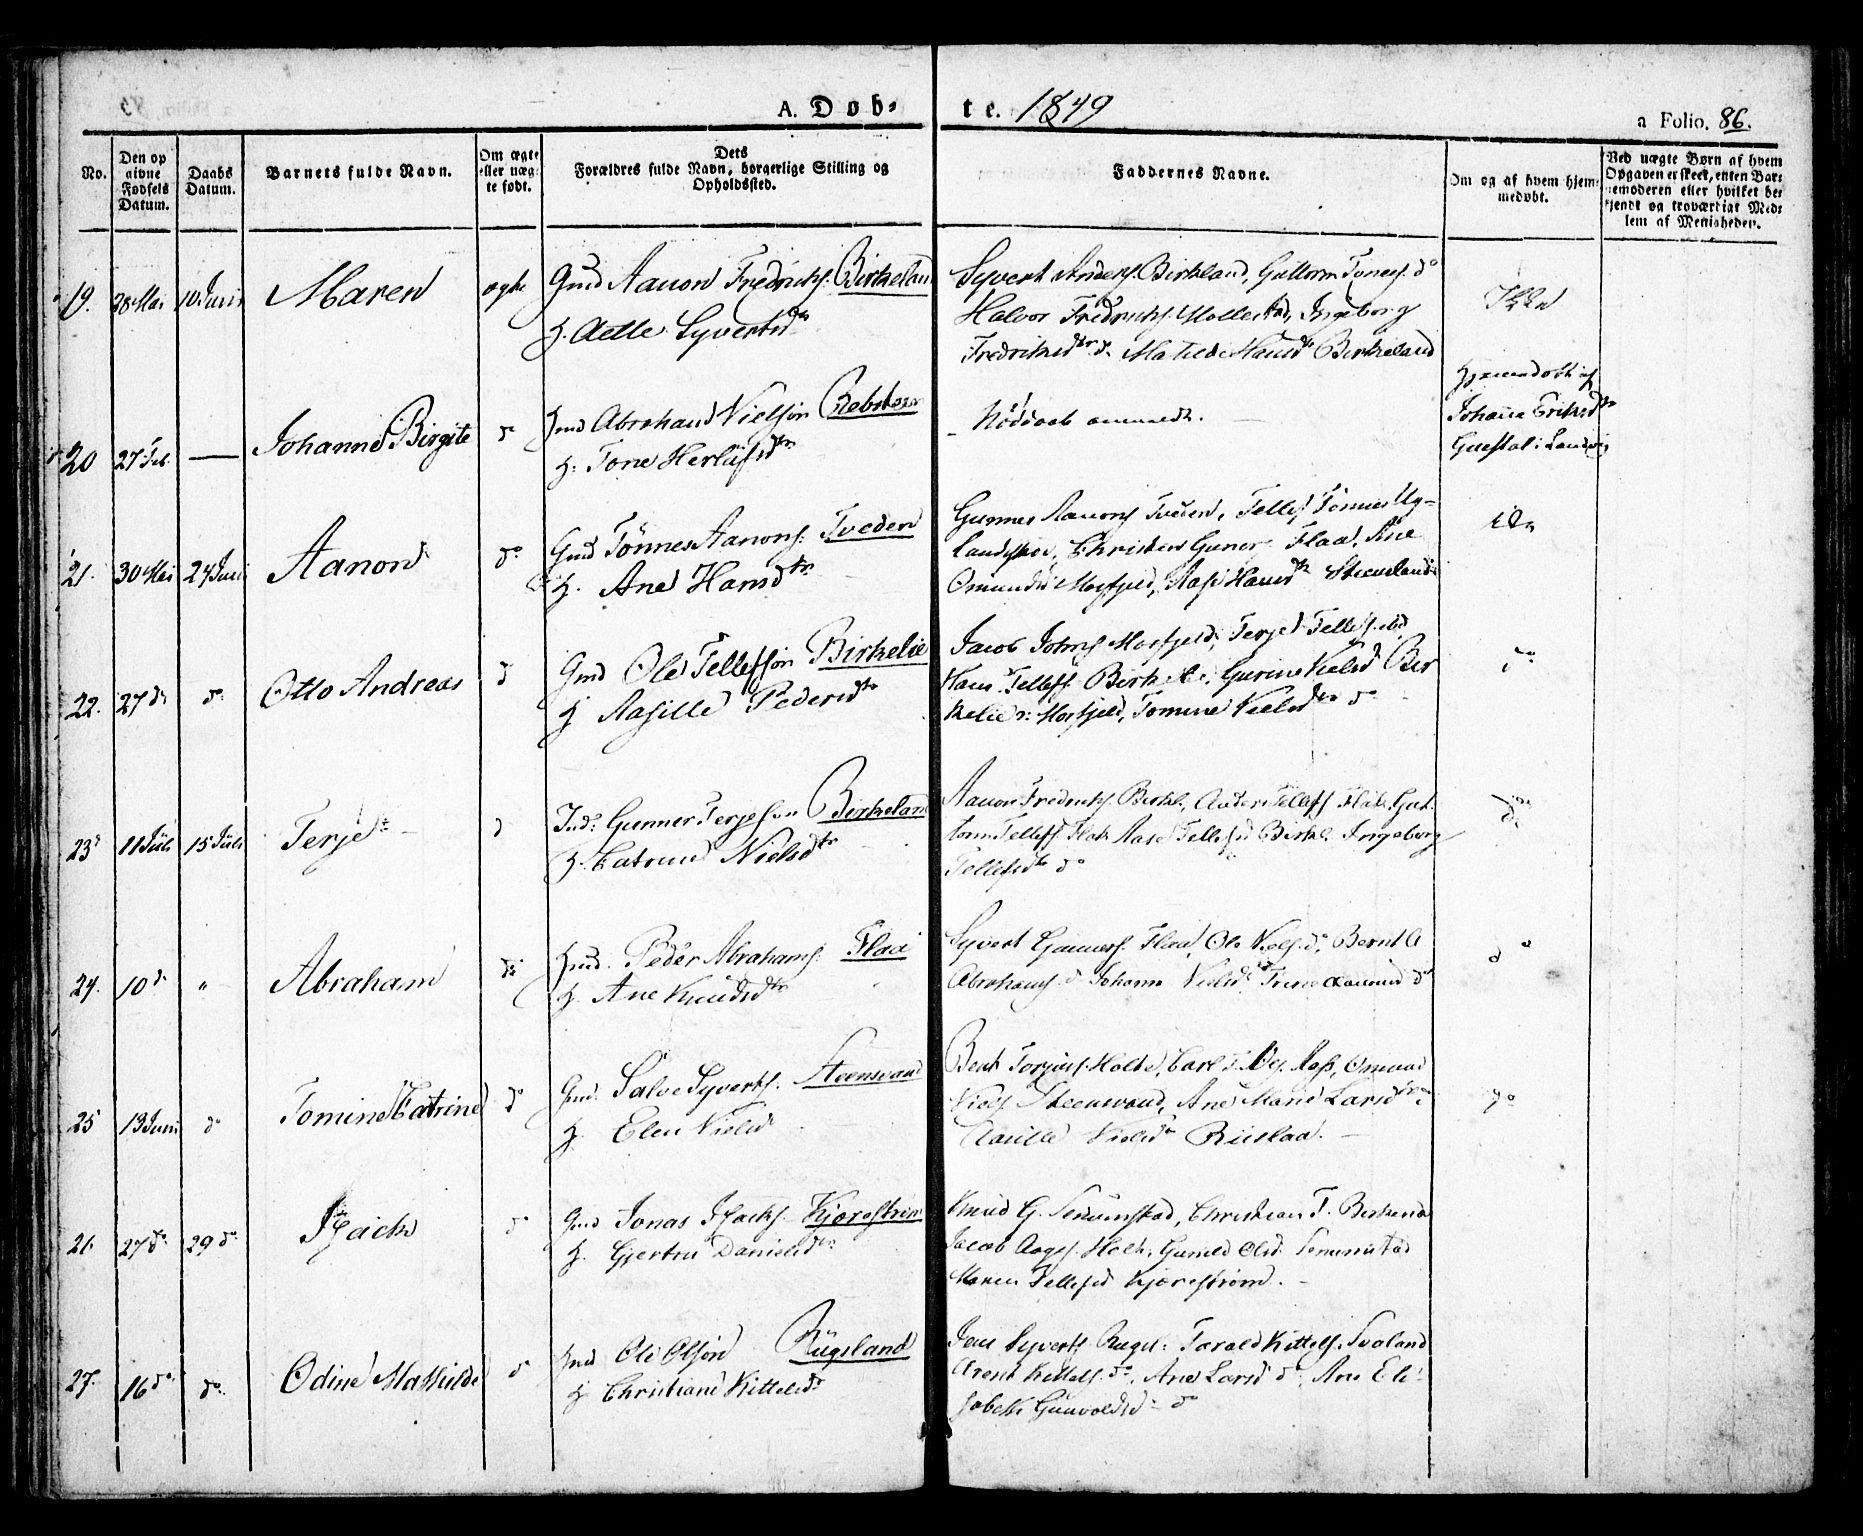 A. Døb-
te. 1849
a Folio. 86.
No.
Den op
givne
Fødsels
Datum.
Daabs
Datum.
Barnets fulde Navn.
Om ægte
eller uæg-
te født.
Dets
Forældres fulde Navn, borgerlige Stilling og
Opholdssted.
Faddernes Navne.
Om og af hvem hjem-
medøbt.
Ved uægte Børn af hvem
Opgaven er skeet, enten Bar-
nemoderen eller hvilket be-
kjendt og troværdigt Med-
lem af Menigheden.
19. 28 Mai 10 Juni Maren ægte Gmd Aanon Fredriks. Birkeland
H. Aelle Syvertsd
Syvert Anders. Birkland, Guttorm Tones. do
Halvor Fredriks. Mollestad, Ingeborg
Fredriksdtr do. Matilde Hansd Birkeland
20 27 Feb. — Johanne Birgite do Gmd Abraham Nielsøn Rebsteen
H: Tone Herlufsdtr
Nøddaab anmeldt.
Hjemmedøbt af
Johanne Eriksdtr
i Landvig
21. 30 Mai 24 Juni Aanon do Gmd Tønnes Aanons. Tveden
H. Ane Hansdtr
Gunner Aanons Tveden, Tellef Tønnes Ug-
landskov, Christen Guner. Flaa, Ane
Omundsd Mosfjeld, Aase Hansdtr
22. 27 do do Otto Andreas do Gmd Ole Tellefsøn Birkelie
H Aasille Pedersdtr
Jacob Johns Mosfjeld, Terje Tellefs. ibd
Hans Tellefs Birkelie, Gurine Nielsd Bir
kelie Mosfjeld, Tomine Nielsdtr do
23 11 Juli 15 Juli Terje do Gunner Terjesøn Birkeland
H. Catrine Nielsdtr
Aanon Fredriks. Birkl., Anders Tellefs Flak, Gut-
torm Tellefs Flak Aase Tellefsd Birkl. Ingeborg
Tellefsdtr do
24. 10 do " Abraham do Gmd. Peder Abrahams. Flaa
H. Ane Knudsdtr
Syvert Gunners. Flaa, Ole Niels. do, Bernt A
Abrahams. do Johanne Nielsd. Trine Aanonsd do
25 13 Juni do Tomine Catrine do Gmd. Salve Syverts. Steensvand
H. Elen Nielsd
Bent Torjus. Holte, Carl T. Moss, Omund
Niels Steensvand, Ane Marie Larsdtr
Aasille Nielsdtr Riislaa.
26. 27 do 29 do Isach do Gmd Jonas Isachs. Kjørestrøm
H. Gjertru Danielsdtr
Knud G. Senumstad, Christian T. Birkenes
Jacob Aages. Holte, Gunild Olsd. Senumstad
Maren Tellefsd Kjørestrøm.
27. 16 do do Odine Mathilde do Gmd Ole Olsøn Rügsland
H Christiane Kittelsdtr
Jens Syverts Rugsl. Tarald Kittels. Svaland
Arent Kittels. do, Ane Larsd do, Ane Eli-
sabeth Gunvoldsd do